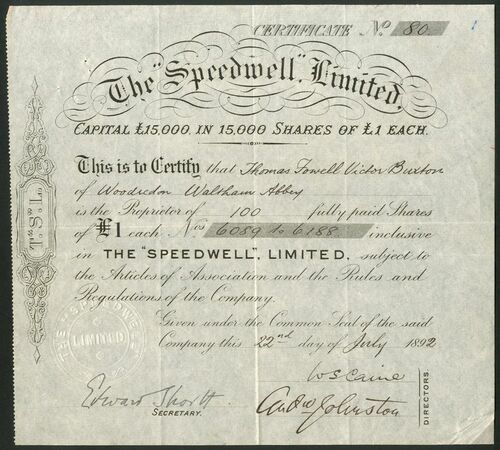 CERTIFICATE No. 80
The "Speedwell", Limited.
CAPITAL £15,000, IN 15,000 SHARES OF £1 EACH.
This is to Certify that Thomas Fowell Victor Buxton
of Woodredon Waltham Abbey
is the Proprietor of 100 fully paid Shares
of £1 each Nos 6089 to 6188 inclusive
in THE "SPEEDWELL", LIMITED, subject to
the Articles of Association and the Rules and
Regulations of the Company.
Given under the Common Seal of the said
Company this 22nd day of July 1892
W S Caine
Edward Shortt
SECRETARY.
Andw Johnston
DIRECTORS.
T."S."L.
THE "SPEEDWELL"
LIMITED